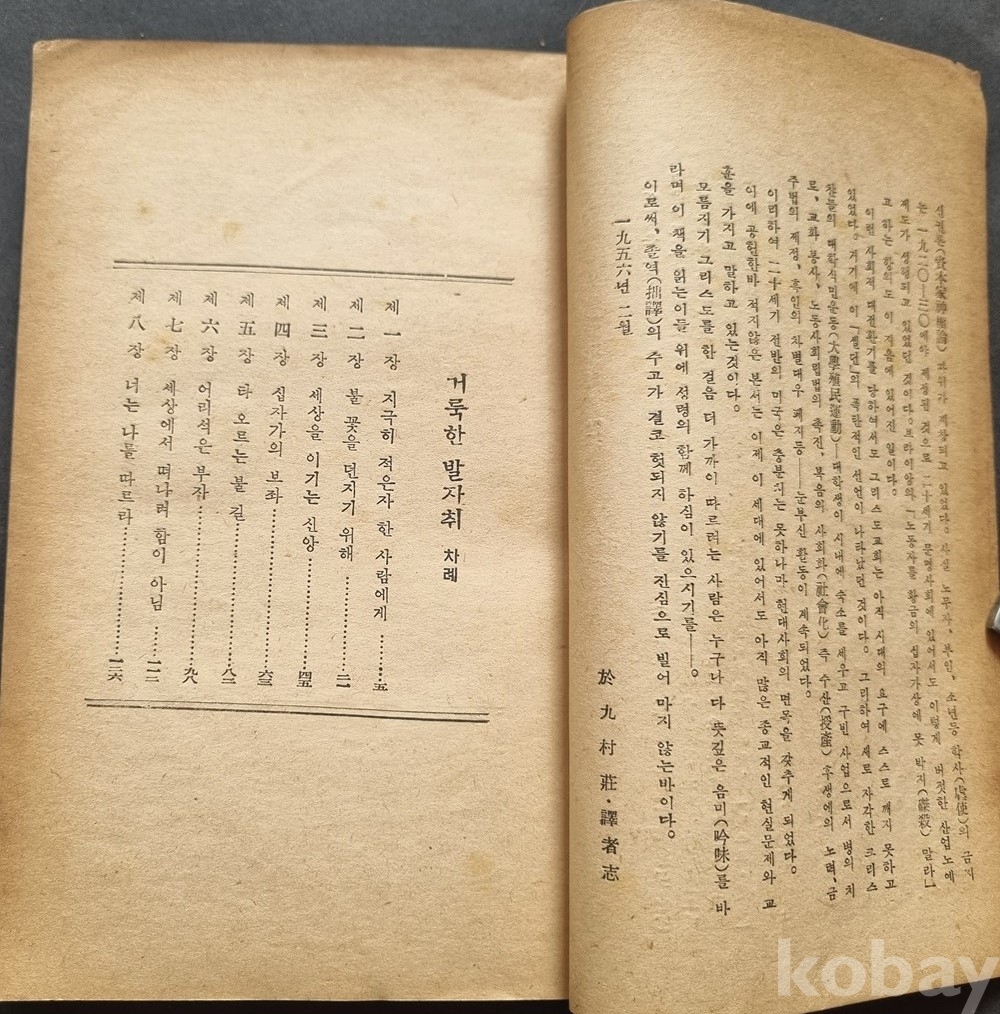 신권론(資本家神權論) 따위가 제창되고 있었다。사실 노무자、부인、소년등 학사(虐使)의 금지
는 一九二〇—三〇에야 제정된 것으로 二十세기 문명사회에 있어서도 이렇게 버젓한 산업 노예
제도가 성행되고 있었던 것이다。브라이앙의「노동자를 황금의 십자가상에 못 박지(磔殺) 말라」
고 하는 항의도 이 지음에 있어진 일이다。
이런 사회적 대전환기를 당하여서도 그리스도교회는 아직 시대의 요구에 스스로 깨지 못하고
있었다。거기에 이「쉘던」의 족한적인 선언이 나타났던 것이다。그리하여 새로 자각한 크리스
찬들의 대학식민운동(大學殖民運動)—대학생이 시내에 숙소를 세우고 구빈 사업으로서 병의 치
료、교화 봉사、노동사회립법의 촉진、복음의 사회화(社會化) 즉 수산(授產) 후생에의 노력、금
주법의 제정、흑인의 차별대우 폐지등——눈부신 활동이 계속되었다。
이리하여 二十세기 전반의 미국은 충분치는 못하나마 현대사회의 면목을 갖추게 되었다。
이에 공헌한바 적지않은 본서는 이제 이 세대에 있어서도 아직 많은 종교적인 현실문제와 교
훈을 가지고 말하고 있는것이다。
모름지기 그리스도를 한 걸음 더 가까이 따르려는 사람은 누구나 다 뜻깊은 음미(吟味)를 바
라며 이 책을 읽는이들 위에 성령의 함께 하심이 있으시기를——。
이로써、졸역(拙譯)의 추고가 결코 헛되지 않기를 진심으로 빌어 마지 않는바이다。
一九五六년 二월
於 九 村 莊・譯 者 志
거룩한 발자취 차례
제 一 장 지극히 적은자 한 사람에게 ……五
제 二 장 불 꽃을 던지기 위해 ……二一
제 三 장 세상을 이기는 신앙 ……四五
제 四 장 십자가의 보좌 ……六三
제 五 장 타 오르는 불 길 ……八二
제 六 장 어리석은 부자 ……九八
제 七 장 세상에서 떠나려 함이 아님 ……一一二
제 八 장 너는 나를 따르라 ……一二六
kobay